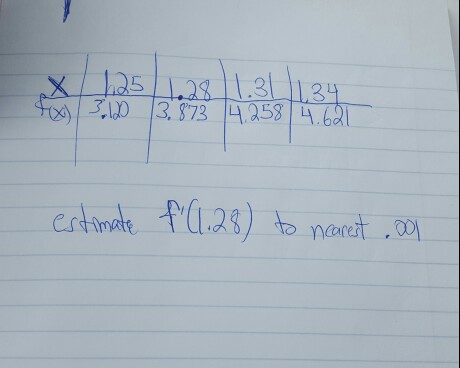 x 1.25 1.28 1.31 1.34
f(x) 3.120 3.873 4.258 4.621
estimate f'(1.28) to nearest .001